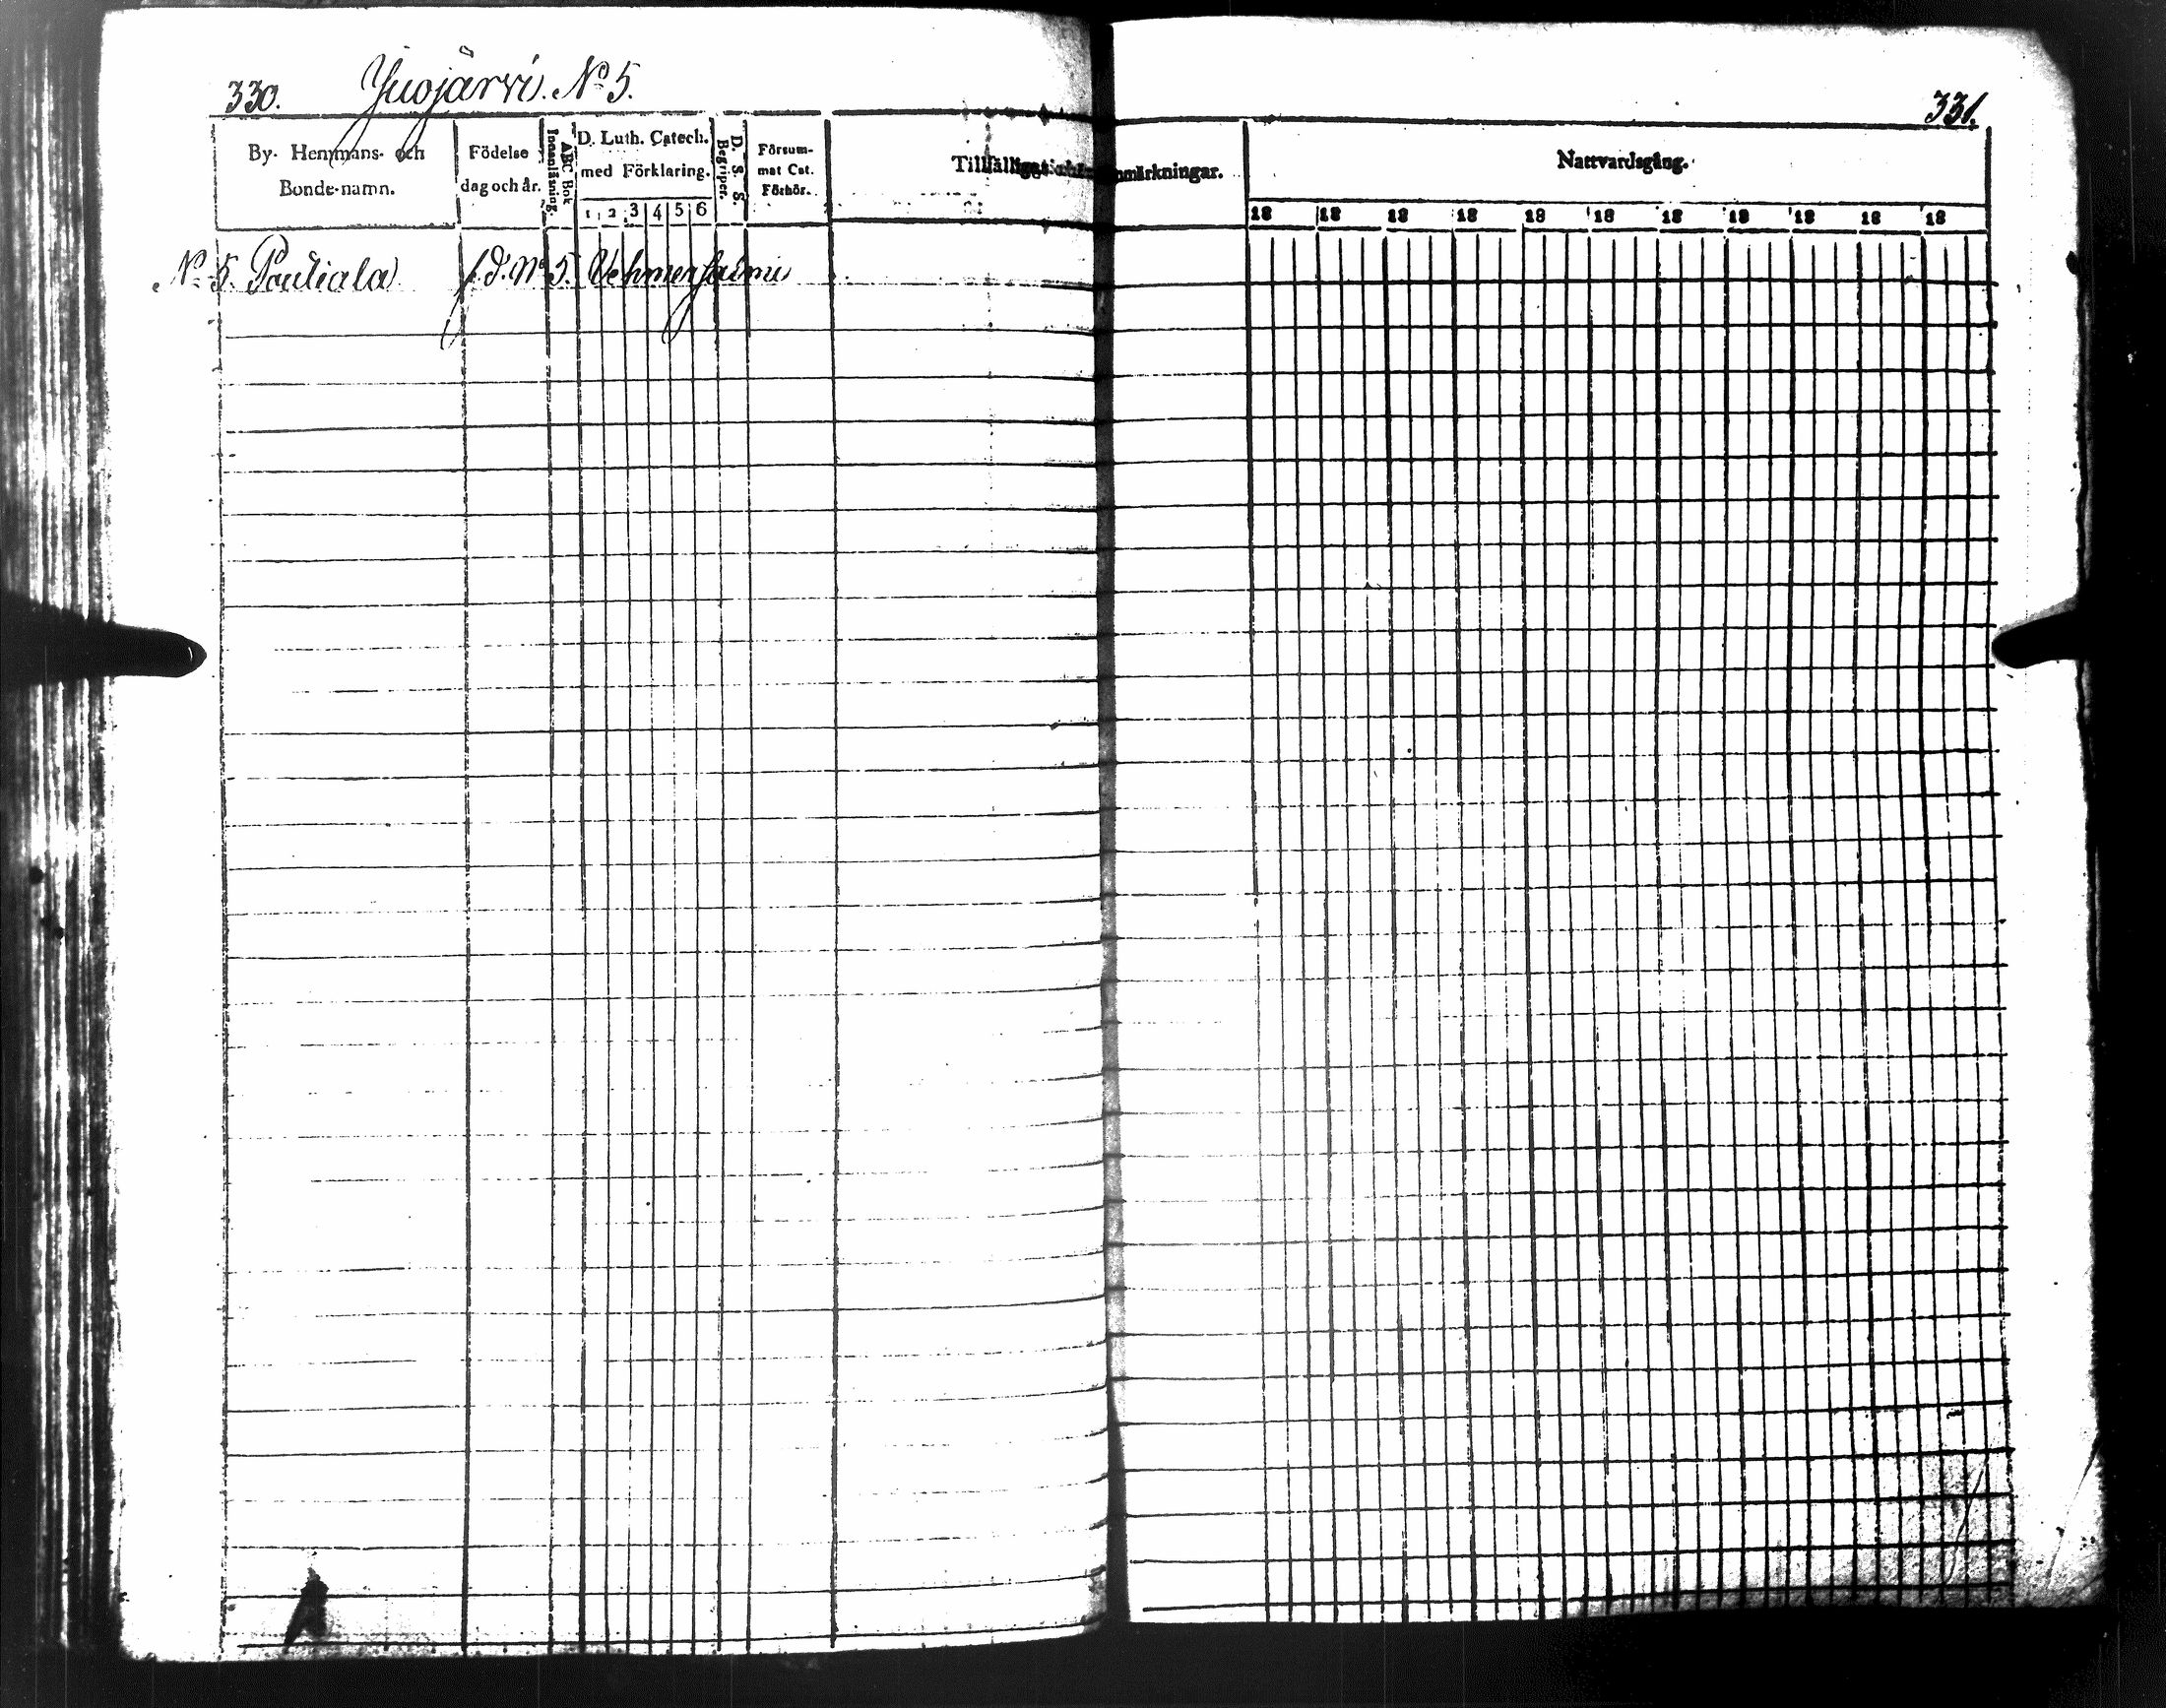 330. Juojärvi. No 5.
331.
By- Hemmans- och Bonde-namn.
Födelse dag och år.
ABC Bok Innanläsning.
D. Luth. Catech. med Förklaring.
1 2 3 4 5 6
D. S. S. Begriper.
Försummat Cat. Förhör.
Tillfälliga anmärkningar.
Nattvardsgång.
18 18 18 18 18 18 18 18 18 18 18
No 5. Pauliala f. d. No 5. Vehmersalmi